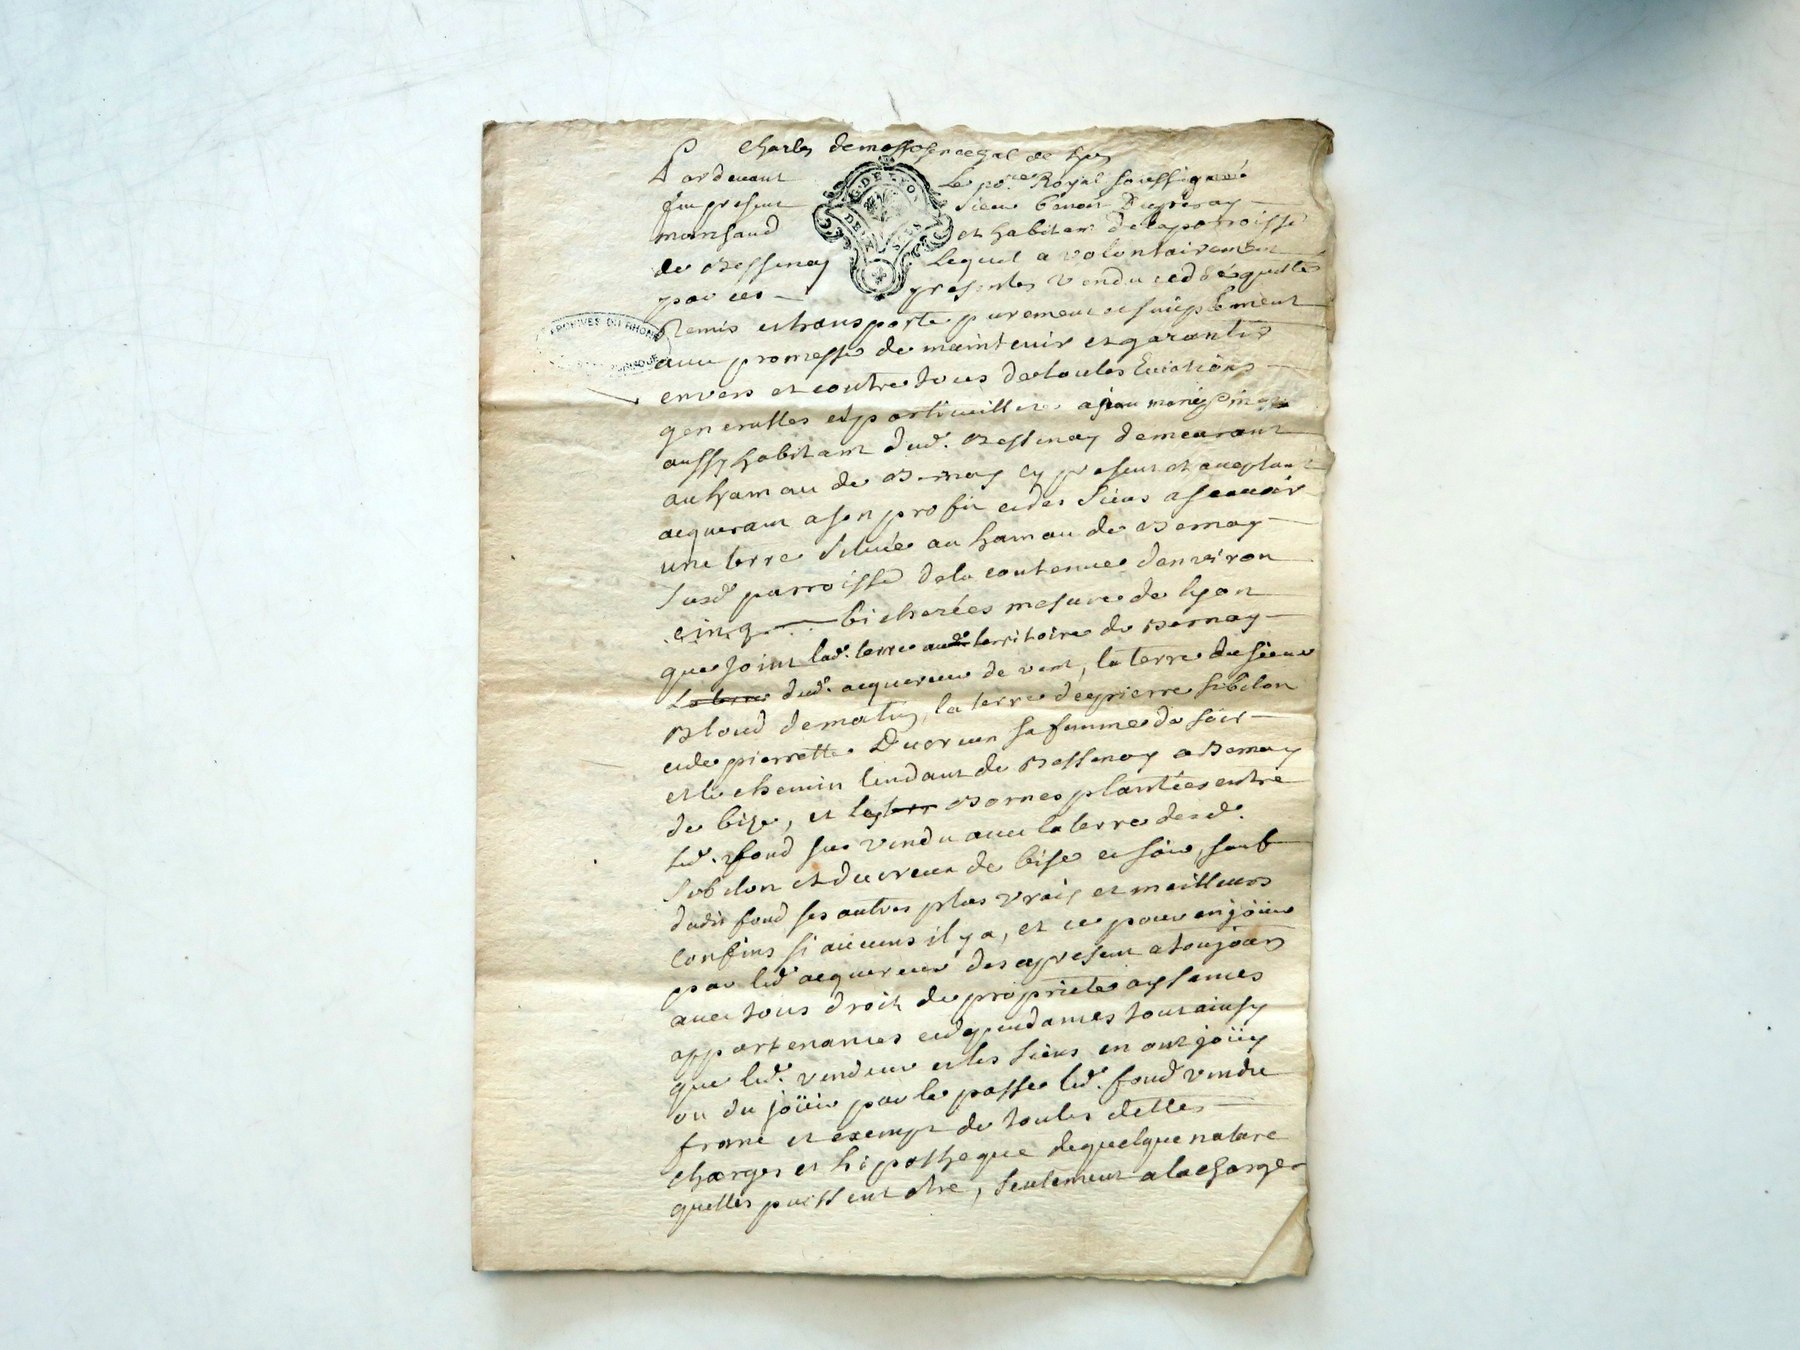 Pardevant Le no.re Royal soussigné
fut present sieur benoit
marchand et habitant de la parroisse
de Bessenay Lequel a volontairement
par ces presentes vendu cedé quitté
Remis et transporté purement et simplement
avec promesse de maintenir et garantir
envers et contre tous de toutes Evictions
generalles et particuillieres a jean marie
aussy habitant dud. Bessenay demeurant
au hamau de Bernay cy present et aceptant
acquerant a son profit et des siens a scavoir
une terre située au hamau de Bernay
susd parroisse de la contenue denviron
cinq bicherées mesure de lyon
que joint lad. terre territoire de Bernay
La terre dud. acquereur de vent, la terre du sieur
Bloud de matin, la terre de pierre sibilon
et de pierrette Ducreux sa femme de soir
et le chemin tendant de Bessenay a Bernay
de bize, et les Bornes plantées entre
led. fond sus vendu avec la terre desd.
Sibilon et ducreux de bise et soir, sauf
dudit fond ses autres plus vrais et meilleurs
confins si aucuns il y a, et ce pour en joüir
par led acquereur des apresent a toujours
avec tous droit de proprieté aysances
appartenances et dependances tout ainsy
que led. vendeur et les siens en ont joüy
ou du joüir par le passe led. fond vendu
franc et exempt de toutes dettes
charges et hipotheque de quelque nature
quelles puissent etre, seulement a la charge
G. DE LYON
DEUX
ARCHIVES DU RHONE